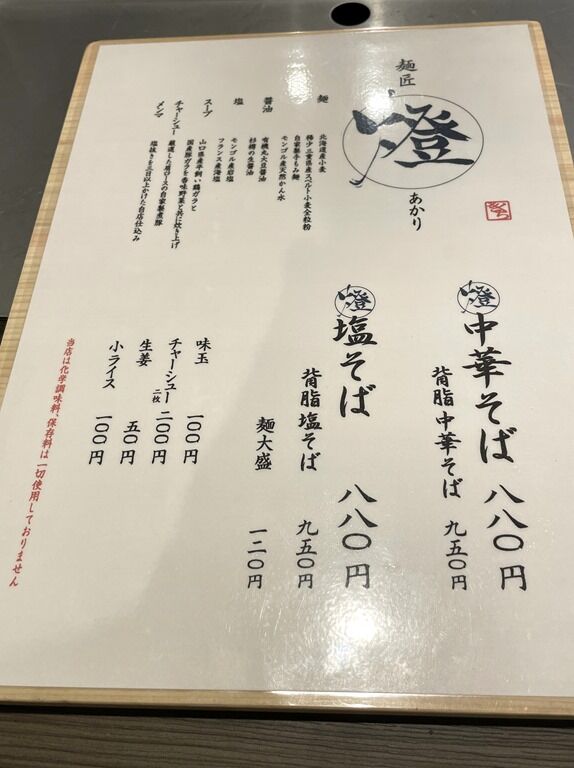 麺匠
燈
あかり
麺
北海道産小麦
稀少 三重県産スペルト小麦全粒粉
自家製手もみ麺
モンゴル産天然かん水
醤油
有機丸大豆醤油
杉樽の生醤油
塩
モンゴル産岩塩
フランス産海塩
スープ
山口県産平飼い鶏ガラと
国産豚ガラを香味野菜と共に炊き上げ
チャーシュー
厳選した肩ロースの自家製煮豚
メンマ
塩抜きを三日以上かけた自店仕込み
燈
中華そば 八八〇円
背脂中華そば 九五〇円
燈
塩そば 八八〇円
背脂塩そば 九五〇円
麺大盛 一二〇円
味玉 一〇〇円
チャーシュー 二枚 二〇〇円
生姜 五〇円
小ライス 一〇〇円
当店は化学調味料、保存料は一切使用しておりません